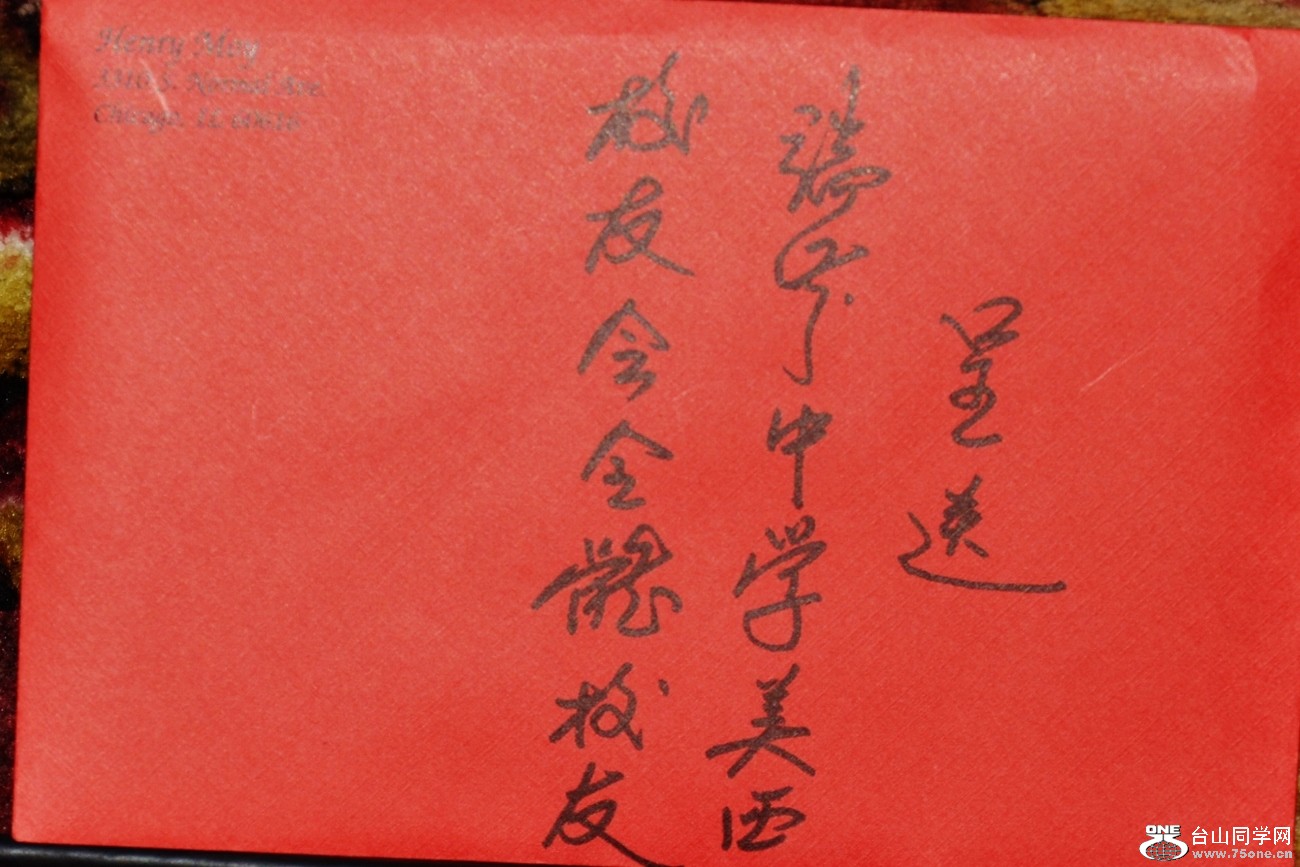 Henry Moy
3310 S. Normal Ave.
Chicago, IL 60616
呈送
端芬中学美西
校友会全體校友
ONE
台山同学网
www.75one.cn